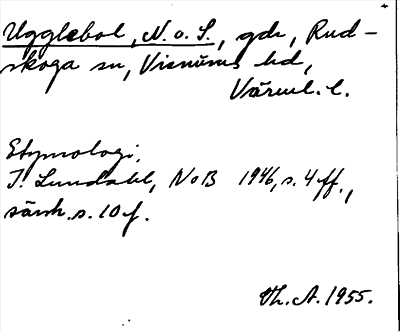 Ugglebol, N. o. S., gdr, Rud-
skoga sn, Visnums hd,
Värml. l.
Etymologi.
I. Lundahl, NoB 1946, s. 4 ff.,
särsk. s. 10 f.
Th. A. 1955.